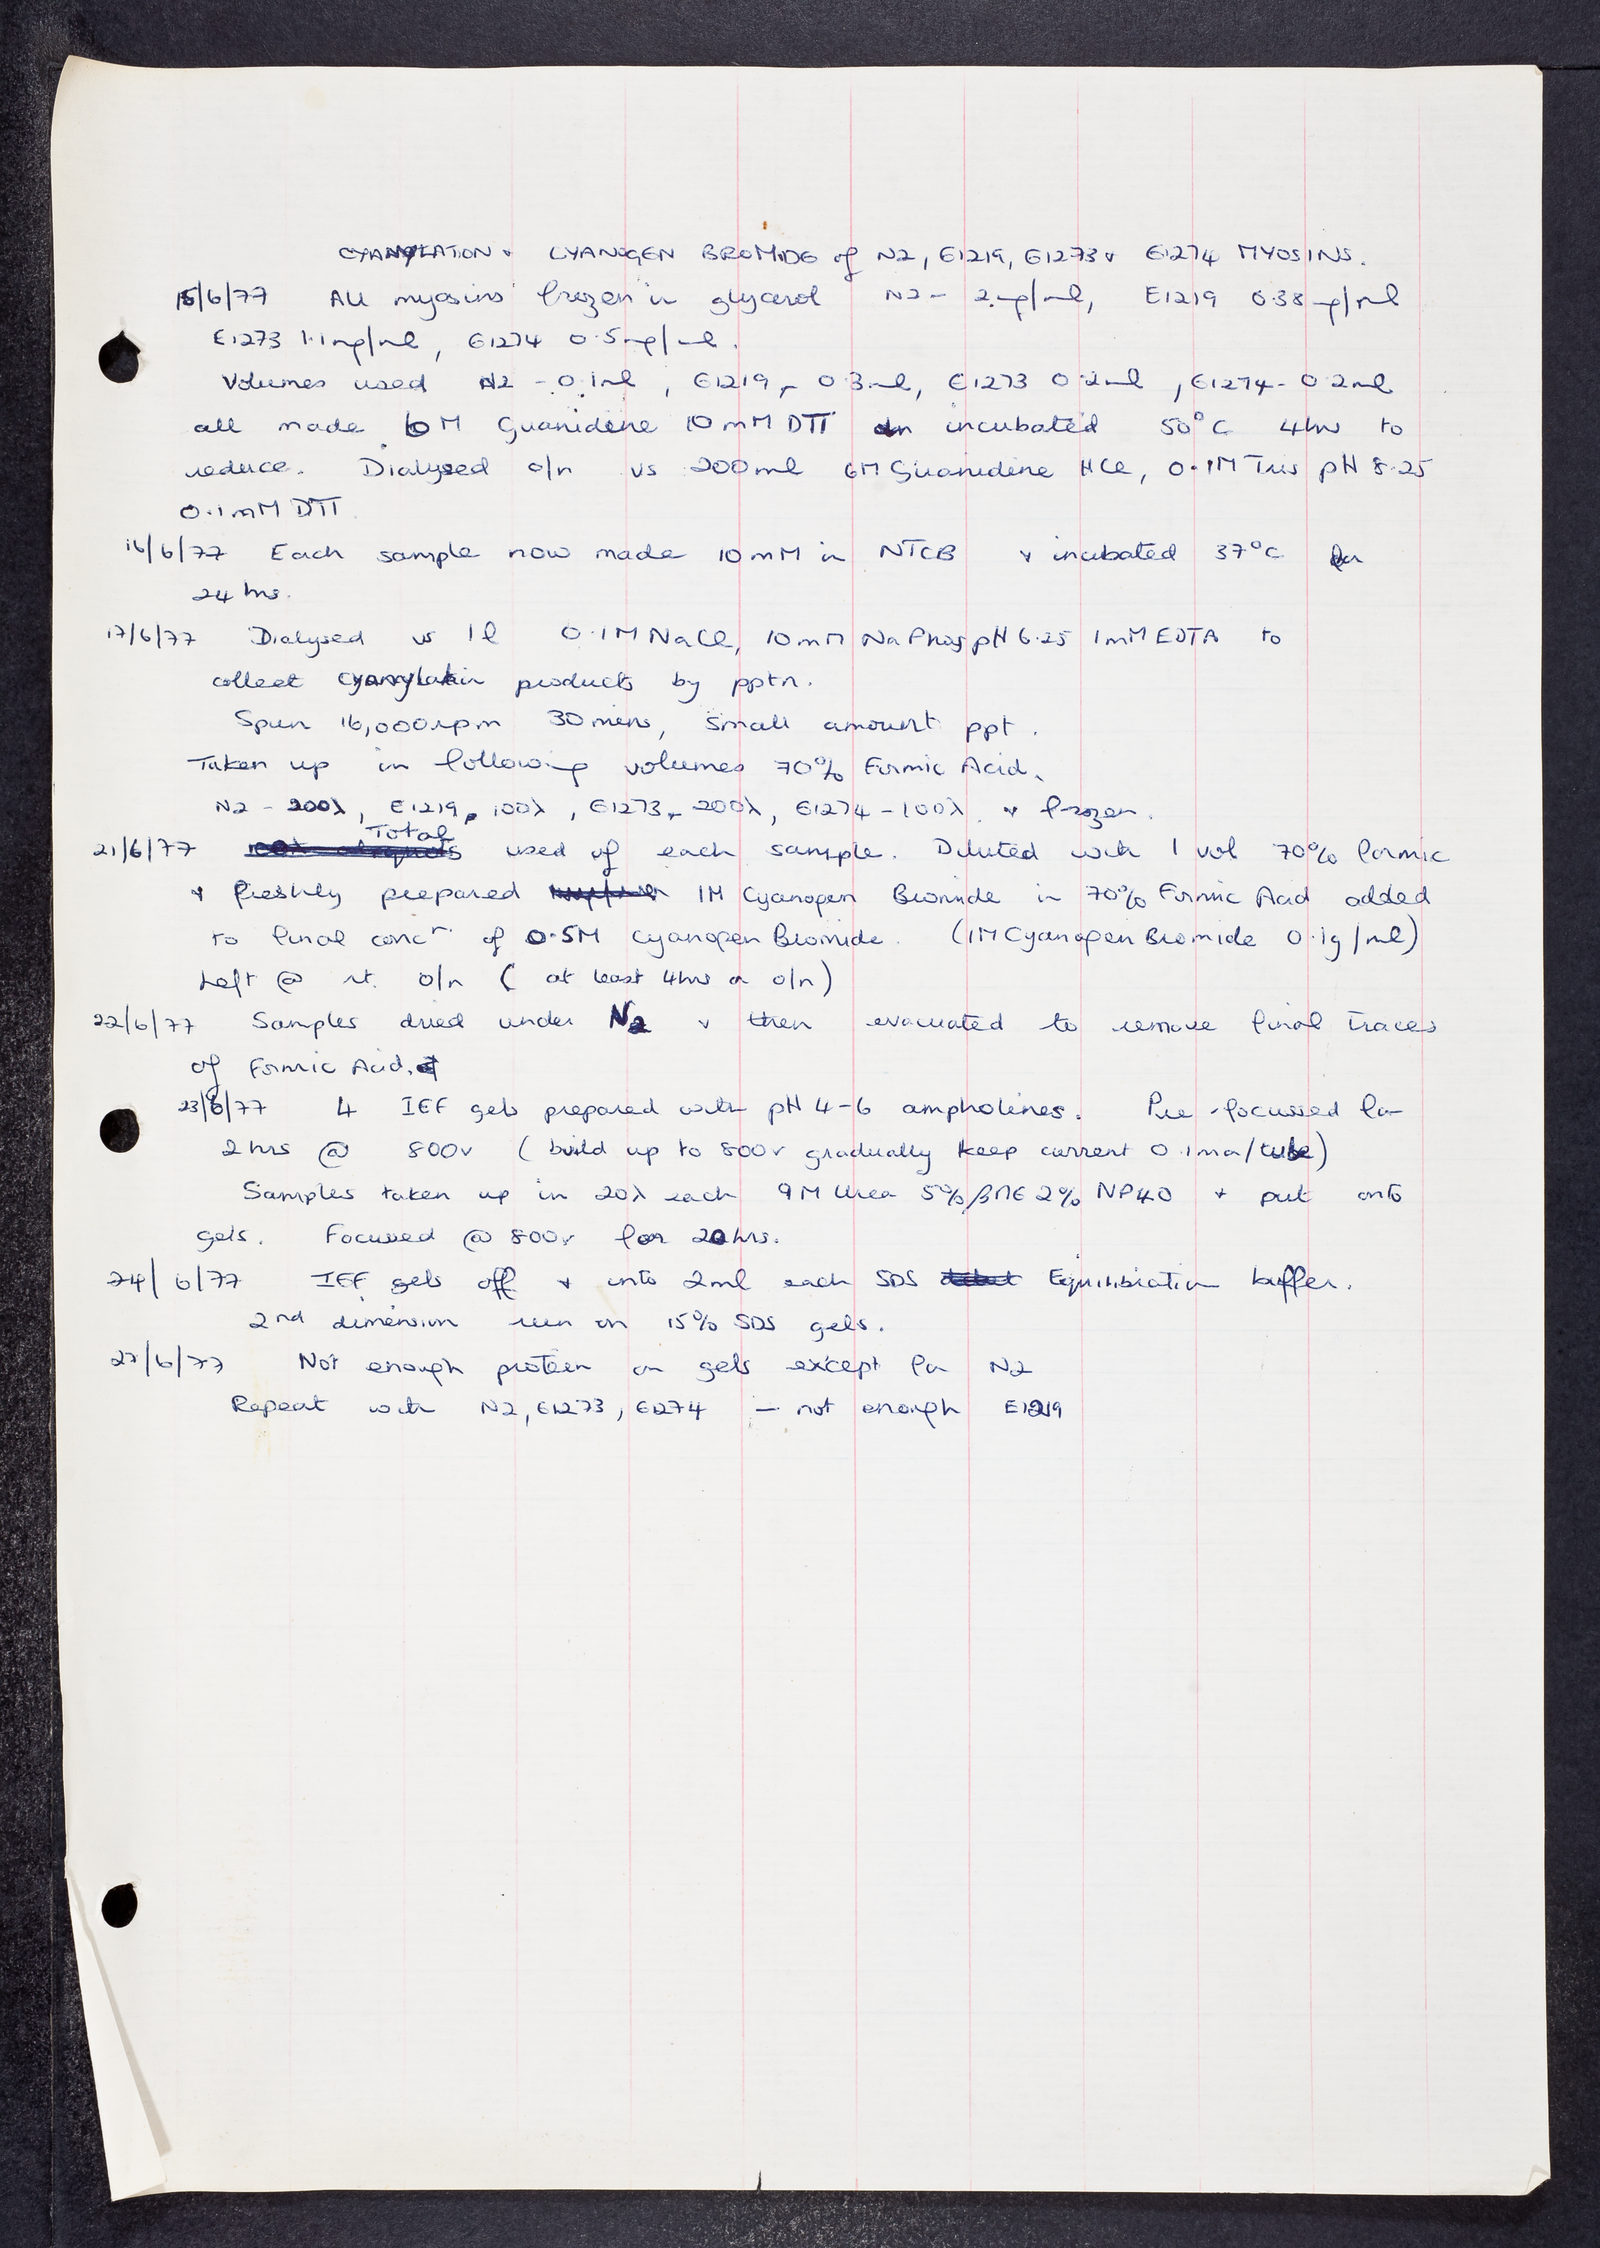 CYANYLATION + CYANOGEN BROMIDE of N2, E1219, E1273 + E1274 MYOSINS.
15/6/77 All myosins frozen in glycerol N2 - 2mg/ml, E1219 0.38mg/ml
E1273 1.1mg/ml, E1274 0.5mg/ml.
Volumes used N2 - 0.1ml, E1219 - 0.3ml, E1273 0.2ml, E1274 - 0.2ml
all made 6M Guanidine 10mM DTT incubated 50°C 4hrs to
reduce. Dialysed o/n vs 200ml 6M Guanidine HCl, 0.1M Tris pH 8.25
0.1mM DTT.
16/6/77 Each sample now made 10mM in NTCB + incubated 37°C for
24 hrs.
17/6/77 Dialysed vs 1l 0.1M NaCl, 10mM NaPhos pH 6.25 1mM EDTA to
collect cyanylation products by pptn.
Spun 16,000rpm 30mins, small amount ppt.
Taken up in following volumes 70% Formic Acid.
N2 - 200λ, E1219 - 100λ, E1273 - 200λ, E1274 - 100λ. + frozen.
Total
21/6/77 100λ aliquots used of each sample. Diluted with 1 vol 70% formic
+ freshly prepared 1M Cyanogen Bromide in 70% Formic Acid added
to final concn. of 0.5M Cyanogen Bromide. (1M Cyanogen Bromide 0.1g/ml)
Left @ rt. o/n (at least 4hrs or o/n)
22/6/77 Samples dried under N2 + then evacuated to remove final traces
of Formic Acid.
23/6/77 4 IEF gels prepared with pH 4-6 ampholines. Pre-focussed for
2hrs @ 800v (build up to 800v gradually keep current 0.1ma/tube)
Samples taken up in 20λ each 9M Urea 5% βME 2% NP40 + put onto
gels. Focussed @ 800v for 20hrs.
24/6/77 IEF gels off + into 2ml each SDS Equilibration buffer.
2nd dimension run on 15% SDS gels.
27/6/77 Not enough protein on gels except for N2
Repeat with N2, E1273, E1274 — not enough E1219